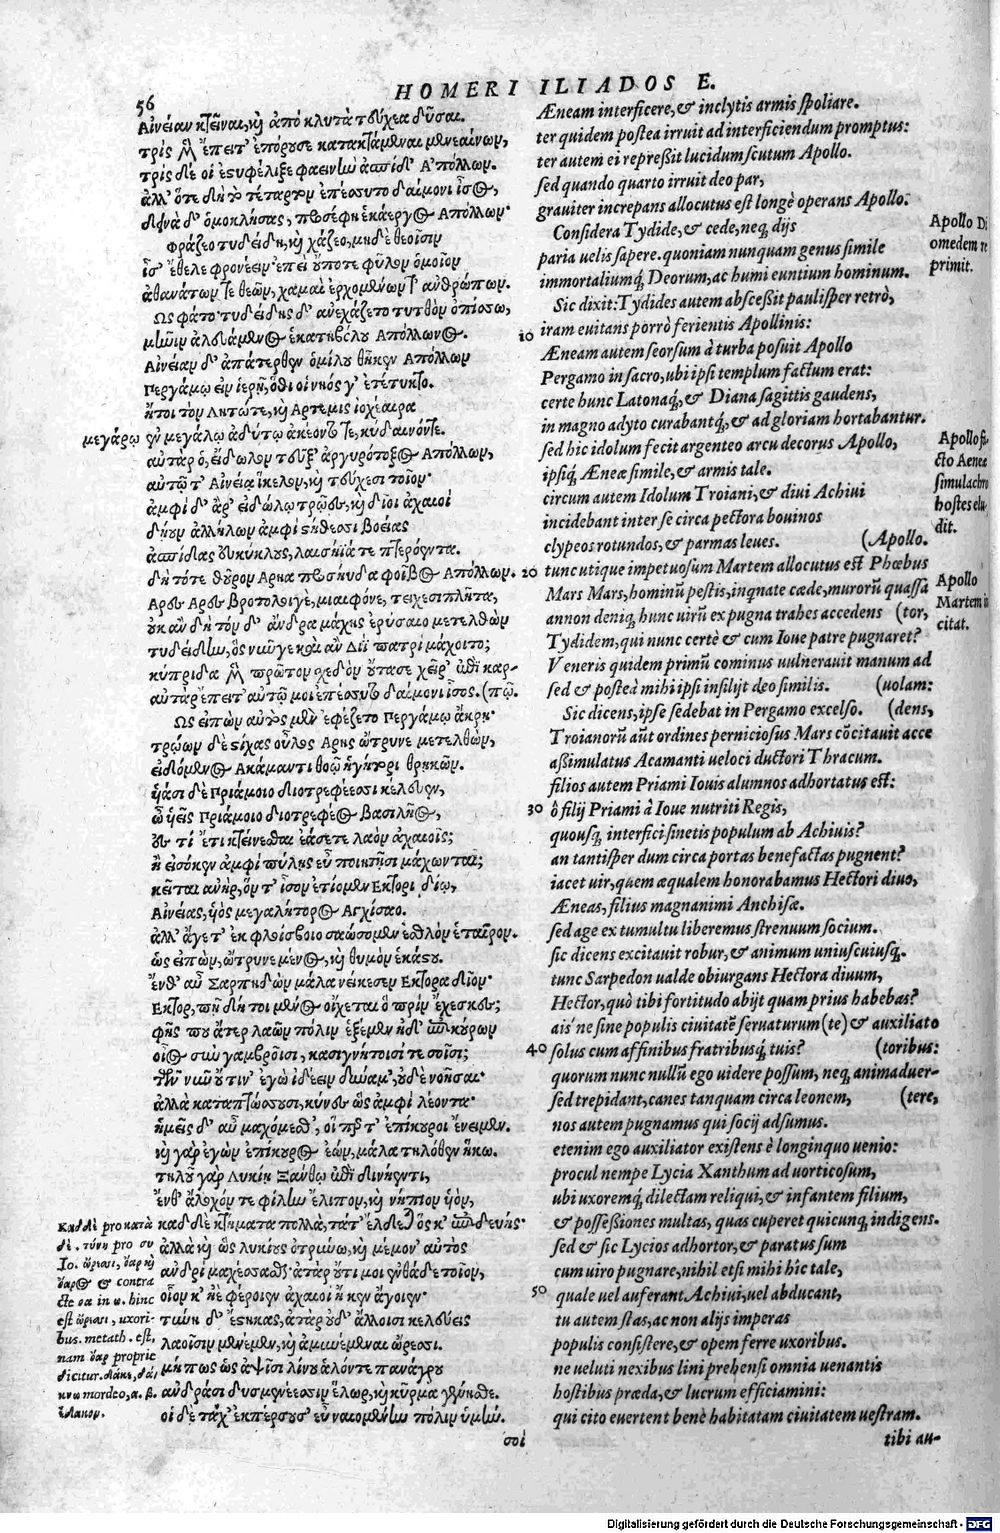 56
HOMERI ILIADOS E.
Αἰνείαν κτεῖναι, κὴ ἀπὸ κλυτὰ τεύχεα δῦσαι.
τρὶς μ̀ ἔπειτ' ἐπόρουσε κατακτάμεναι μενεαίνων,
τρὶς δέ οἱ ἐστυφέλιξε φαεινὼ ἀσπίδ' Ἀπόλλων.
ἀλλ' ὅτε δὴ τὸ τέταρτον ἐπέσσυτο δαίμονι ἶσος,
δεινὰ δ' ὁμοκλήσας, προσέφη ἑκάεργος Ἀπόλλων·
φράζεο τυδείδη, κὴ χάζεο, μηδὲ θεοῖσιν
ἶσ' ἔθελε φρονέειν· ἐπεὶ οὔποτε φῦλον ὁμοῖον
ἀθανάτων τε θεῶν, χαμαὶ ἐρχομένων τ' ἀνθρώπων.
Ὣς φάτο· τυδείδης δ' ἀνεχάζετο τυτθὸν ὀπίσσω,
μῆνιν ἀλευάμενος ἑκατηβόλου Ἀπόλλωνος.
Αἰνείαν δ' ἀπάτερθεν ὁμίλου θῆκεν Ἀπόλλων
Περγάμῳ εἰν ἱερῇ, ὅθι οἱ νηός γ' ἐτέτυκτο.
ἤτοι τὸν Λητώτε, κὴ Ἄρτεμις ἰοχέαιρα
μεγάρῳ
ἐν μεγάλῳ ἀδύτῳ ἀκέοντό τε, κύδαινόντε.
αὐτὰρ ὁ, εἴδωλον τεῦξ' ἀργυρότοξος Ἀπόλλων,
αὐτῷ τ' Αἰνείᾳ ἴκελον, κὴ τεύχεσι τοῖον·
ἀμφὶ δ' ἄρ' εἰδώλῳ τρῶες, κὴ δῖοι ἀχαιοὶ
δῄουν ἀλλήλων ἀμφὶ στήθεσσι βοείας
ἀσπίδας εὐκύκλους, λαισήϊά τε πτερόεντα.
δὴ τότε θοῦρον Ἄρηα προσηύδα φοῖβος Ἀπόλλων.
Ἆρες Ἄρες βροτολοιγὲ, μιαιφόνε, τειχεσιπλῆτα,
οὐκ ἂν δὴ τόνδ' ἄνδρα μάχης ἐρύσαιο μετελθὼν
τυδείδην, ὃς νῦν γε καὶ ἂν Διῒ πατρὶ μάχοιτο;
κύπριδα μ̀ πρῶτον σχεδὸν οὔτασε χεῖρ' ἐπὶ καρ-
αὐτὰρ ἔπειτ' αὐτῷ μοι ἐπέσσυτο δαίμονι ἶσος. (πῷ.
Ὣς εἰπὼν αὐτὸς μὲν ἐφέζετο Περγάμῳ ἄκρῃ·
τρώων δὲ στίχας οὖλος Ἄρης ὤτρυνε μετελθὼν,
εἰδόμενος Ἀκάμαντι θοῷ ἡγήτορι θρῃκῶν.
ἡάσι δὲ Πριάμοιο διοτρεφέεσσι κέλευεν,
ὦ ἡεῖς Πριάμοιο διοτρεφέος βασιλῆος,
ἐς τί ἔτι κτείνεσθαι ἐάσετε λαὸν ἀχαιοῖς;
ἢ εἰσόκεν ἀμφὶ πύλης εὖ ποιητῇσι μάχωνται;
κεῖται ἀνὴρ, ὅν τ' ἶσον ἐτίομεν Ἕκτορι δίῳ,
Αἰνείας, ἡὸς μεγαλήτορος Ἀγχίσαο.
ἀλλ' ἄγετ' ἐκ φλοίσβοιο σαώσομεν ἐσθλὸν ἑταῖρον.
ὣς εἰπὼν, ὤτρυνε μένος, κὴ θυμὸν ἑκάστου.
ἔνθ' αὖ Σαρπηδὼν μάλα νείκεσεν Ἕκτορα δῖον·
Ἕκτορ, πῆ δή τοι μένος οἴχεται ὃ πρὶν ἔχεσκες;
φῆς που ἄτερ λαῶν πόλιν ἑξέμεν ἠδ' ἐπικούρων
οἶος σὺν γαμβροῖσι, κασιγνήτοισί τε σοῖσι;
τῶν νῦν οὔτιν' ἐγὼ ἰδέειν δύναμ', οὐδὲ νοῆσαι·
ἀλλὰ καταπτώσσουσι, κύνες ὣς ἀμφὶ λέοντα·
ἡμεῖς δ' αὖ μαχόμεσθ', οἵπερ τ' ἐπίκουροι ἔνειμεν.
κὴ γὰρ ἐγὼν ἐπίκουρος ἐὼν, μάλα τηλόθεν ἥκω.
τηλοῦ γὰρ Λυκίη Ξάνθῳ ἐπὶ δινήεντι,
ἔνθ' ἄλοχόν τε φίλην ἔλιπον, κὴ νήπιον ἡὸν,
καδδὲ κτήματα πολλὰ, τάτ' ἔλδεται ὅς κ' ἐπιδευής·
ἀλλὰ κὴ ὣς λυκίους ὀτρύνω, κὴ μέμον' αὐτὸς
ἀνδρὶ μαχέσσασθαι· ἀτὰρ οὔτι μοι ἐνθάδε τοῖον,
οἷον κ' ἠὲ φέροιεν ἀχαιοὶ ἤ κεν ἄγοιεν·
τύνη δ' ἕστηκας, ἀτὰρ οὐδ' ἄλλοισι κελεύεις
λαοῖσιν μενέμεν, κὴ ἀμυνέμεναι ὤρεσσι.
μήπως ὡς ἀψῖσι λίνου ἁλόντε πανάγρου
ἀνδράσι δυσμενέεσσιν ἕλωρ, κὴ κῦρμα γένησθε.
οἱ δὲ τάχ' ἐκπέρσουσ' εὖ ναιομένην πόλιν ὑμήν.
σοὶ
καδδὲ pro κατὰ
δὲ. τύνη pro συ
Io. ὤρεσσι, ὄαρ κὴ
ὄαρος & contra
cte οα in ω. hinc
est ὤρεσσι, uxori-
bus. metath. est,
nam ὄαρ propriè
dicitur. δάκε, δά-
κνω mordeo, α. β.
ἔδακον.
Æneam interficere, & inclytis armis spoliare.
ter quidem postea irruit ad interficiendum promptus:
ter autem ei repressit lucidum scutum Apollo.
sed quando quarto irruit deo par,
grauiter increpans allocutus est longè operans Apollo:
Considera Tydide, & cede, neq; dijs
paria uelis sapere. quoniam nunquam genus simile
immortaliumq́; Deorum, ac humi euntium hominum.
Sic dixit: Tydides autem abscessit paulisper retrò,
10 iram euitans porrò ferientis Apollinis:
Æneam autem seorsum à turba posuit Apollo
Pergamo in sacro, ubi ipsi templum factum erat:
certe hunc Latonaq́;, & Diana sagittis gaudens,
in magno adyto curabantq́;, & ad gloriam hortabantur.
sed hic idolum fecit argenteo arcu decorus Apollo,
ipsiq́; Æneæ simile, & armis tale.
circum autem Idolum Troiani, & diui Achiui
incidebant inter se circa pectora bouinos
clypeos rotundos, & parmas leues. (Apollo.
20 tunc utique impetuosum Martem allocutus est Phœbus
Mars Mars, hominũ pestis, inq́nate cæde, murorũ quassa
annon deniq; hunc uirũ ex pugna trahes accedens (tor,
Tydidem, qui nunc certè & cum Ioue patre pugnaret?
Veneris quidem primũ cominus uulnerauit manum ad
sed & posteà mihi ipsi insilijt deo similis. (uolam:
Sic dicens, ipse sedebat in Pergamo excelso. (dens,
Troianorũ aũt ordines perniciosus Mars cõcitauit acce
assimulatus Acamanti veloci ductori Thracum.
filios autem Priami Iouis alumnos adhortatus est:
30 ô filij Priami à Ioue nutriti Regis,
quousq; interfici sinetis populum ab Achiuis?
an tantisper dum circa portas benefactas pugnent?
iacet uir, quem æqualem honorabamus Hectori diuo,
Æneas, filius magnanimi Anchisæ.
sed age ex tumultu liberemus strenuum socium.
sic dicens excitauit robur, & animum uniuscuiusq;.
tunc Sarpedon ualde obiurgans Hectora diuum,
Hector, quò tibi fortitudo abijt quam prius habebas?
ais' ne sine populis ciuitatẽ seruaturum (te) & auxiliato
40 solus cum affinibus fratribusq́; tuis? (toribus:
quorum nunc nullũ ego uidere possum, neq; animaduer-
sed trepidant, canes tanquam circa leonem, (tere,
nos autem pugnamus qui socij adsumus.
etenim ego auxiliator existens è longinquo uenio:
procul nempe Lycia Xanthum ad uorticosum,
ubi uxoremq́; dilectam reliqui, & infantem filium,
& possessiones multas, quas cuperet quicunq; indigens.
sed & sic Lycios adhortor, & paratus sum
cum uiro pugnare, nihil etsi mihi hîc tale,
50 quale uel auferant Achiui, uel abducant,
tu autem stas, ac non alijs imperas
populis consistere, & opem ferre uxoribus.
ne ueluti nexibus lini prehensi omnia uenantis
hostibus præda, & lucrum efficiamini:
qui cito euertent benè habitatam ciuitatem uestram.
tibi au-
Apollo Di
omedem re
primit.
Apollo fi
cto Aeneæ
simulachro
hostes elu
dit.
Apollo
Martem in
citat.
Digitalisierung gefördert durch die Deutsche Forschungsgemeinschaft - DFG